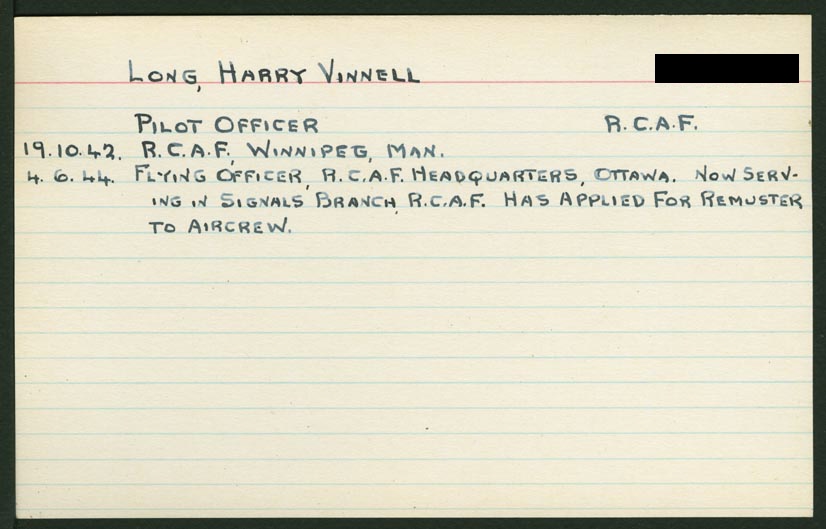 LONG, HARRY VINNELL
PILOT OFFICER R.C.A.F.
19.10.42. R.C.A.F., WINNIPEG, MAN.
4.6.44. FLYING OFFICER, R.C.A.F. HEADQUARTERS, OTTAWA. NOW SERV-
ING IN SIGNALS BRANCH, R.C.A.F. HAS APPLIED FOR REMUSTER
TO AIRCREW.